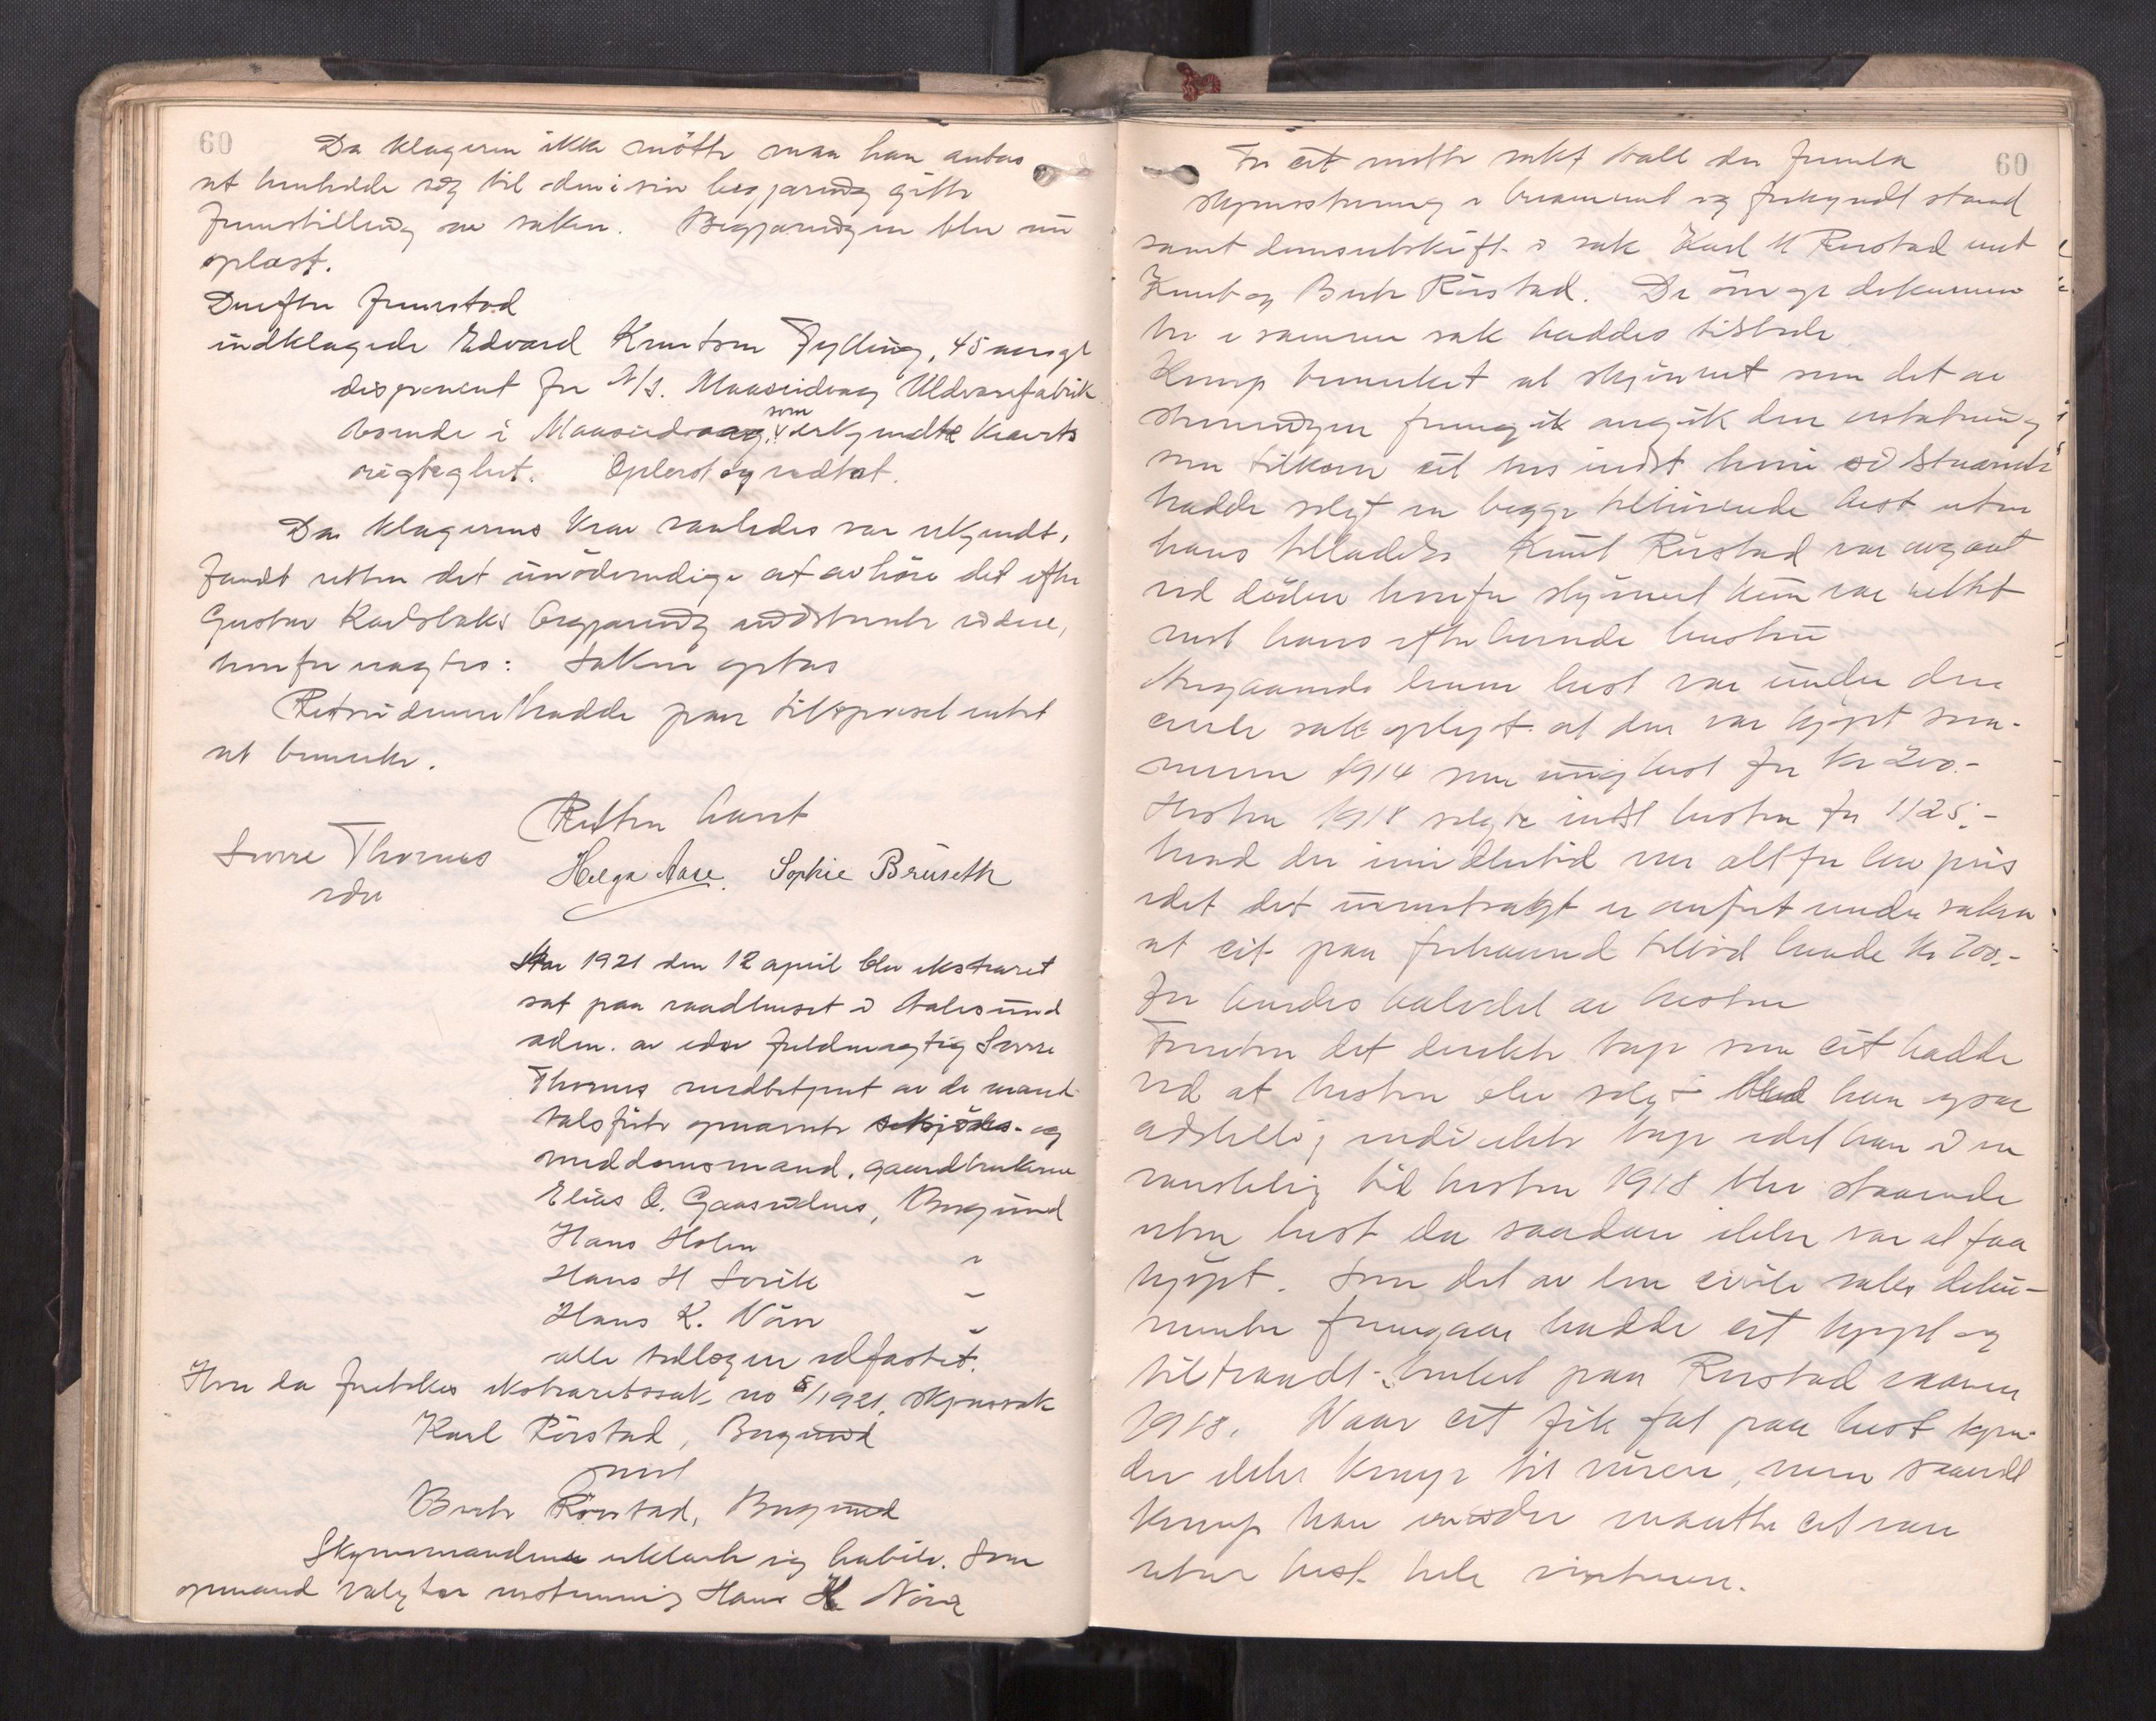 60
Da klageren ikke mötte maa han antas
at henholde sig til den i sin begjæring gitte
fremstilling av saken. Begjæringen blev nu
oplæst.
Derefter fremstod
indklagede Edvard Knutsen Fylling, 45 aar gl
disponent for A/S. Maaseidvaag Uldvarefabrik
boende i Maaseidvaag, som erkjendte kravets
rigtighet. Oplæst og vedtat.
Da klagerens krav saaledes var erkjendt,
fandt retten det unödvendige at avhöre det efter
Gustav Karlsbaks begjæring indstevnte vidne,
hvorfor vagtes: Saken optas
Retsvidnerne hadde paa tilspørsel intet
at bemerke.
Retten hævet
Sverre Thornes
edsv
Helga Aase. Sophie Brüseth
Aar 1921 den 12 april blev ekstraret
sat paa raadhuset i Aalesund
adm. av edsv fuldmægtig Sverre
Thornes medbetjent av de mand-
talsførte opnævnte og
meddomsmænd, gaardbrukerne
Elias O. Gaasvölnes, Borgund
Hans Holen "
Hans H Sorile "
Hans K. Nörve "
alle tidligere edfæstet.
Hvor da foretokes ekstraretssak no 8/1921, skjønssak
Karl Rörstad, Borgund
mot
Berte Rörstad, Borgund
Skjønsmændene erklærte sig habile. Som
opmand valgtes enstemmig Hans K Nörve
60
For cit mötte sakf Wall der fremla
skjønsstevning i berammet og forkyndt stand
samt domsutskrift i sak Karl K Rørstad mot
Knut og Berte Rörstad. De övrige dokumen
ter i samme sak haddes tilstede
Komp bemerket at skjönnet som det av
stevningen fremgik angik den erstatning
som tilkom cit hos indst
hadde solgt en begge tilhørende hest uten
hans tilladelse Knut Rörstad var avgaat
ved döden hvorfor skjönnet kun var rettet
mot hans efterlevende hustru
Angaaende denne hest var under den
civile sak oplyst at den var kjøpt som-
meren 1914 som unghest for kr 200.-
Høsten 1918 solgte indst hesten for 1125.-
hvad der imidlertid var alt for lav pris
idet det uimotsagt er anført under saken
at cit paa forhaand tilbød hende kr 700.-
for hendes halvdel av hesten
Foruten det direkte tap som cit hadde
ved at hesten blev solgt hadde han ogsaa
adskillig indirekte tap idet han i en
vanskelig tid høsten 1918 blev staaende
uten hest da saadan ikke var at faa
kjöpt. Som det av den civile saks doku-
menter fremgaar hadde cit kjøpt og
tiltraadt bruket paa Rørstad vaaren
1918. Naar cit fik fat paa hest kjen-
der ikke komp til nöiere, men saavidt
komp han maatte cit være
uten hest hele vinteren.